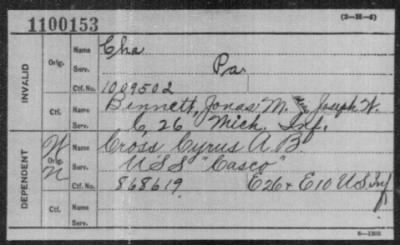 1100153
(3-35-6)
INVALID
Orig.
Name Cha
Serv. Pa
Ctf. No. 1009502
Ctf. Name Bennett, Jonas M. Joseph W.
Serv. C, 26 Mich. Inf.
DEPENDENT
W Orig. N
Name Cross Cyrus A B
Serv. U.S.S "Casco"
868619 E26 + E10 U S Inf
Ctf. Name
Serv.